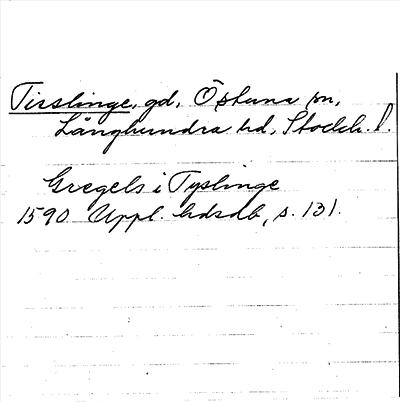 Tisslinge, gd, Östuna sn,
Långhundra hd, Stockh. l.
Gregels i Tyslinge
1590 Uppl. hdsdb, s. 131.